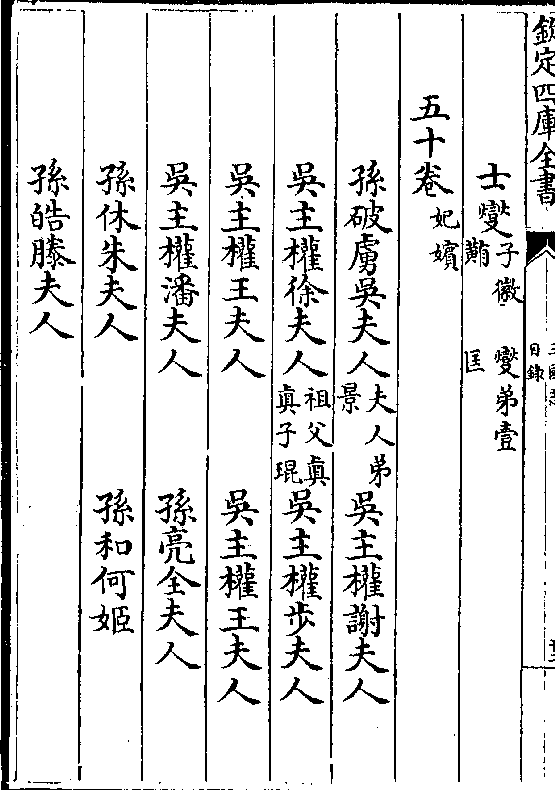 欽定四庫全書
三國志
目錄
士燮 子徽 燮弟壹
䵋 匡
五十卷 妃嬪
孫破虜吳夫人 夫人弟景 吳主權謝夫人
吳主權徐夫人 祖父真真子琨 吳主權步夫人
吳主權王夫人 吳主權王夫人
吳主權潘夫人 孫亮全夫人
孫休朱夫人 孫和何姬
孫皓滕夫人